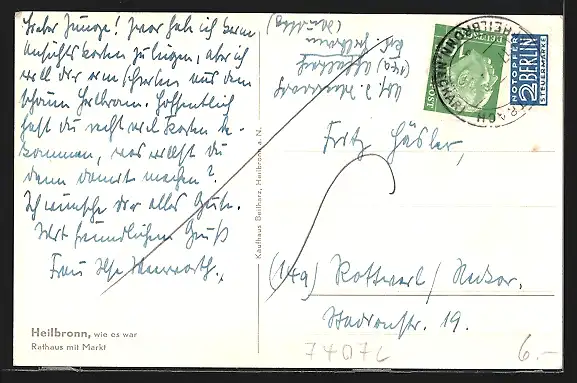 Lieber Junge! Zwar hab ich keine
Ansichtskarten zu liegen, aber ich
will dir eine schreiben aus dem
schönen Heilbronn. Hoffentlich
hast du nicht viel Karten be-
kommen, was willst du
denn damit machen?
Ich wünsche dir alles Gute.
Mit freundlichem Gruß
Frau Ilse
Heilbronn, wie es war
Rathaus mit Markt
Kaufhaus Beilharz, Heilbronn a. N.
(14a)
Heilbronn
HEILBRONN
NOTOPFER
2 BERLIN
STEUERMARKE
Fritz Häsler,
(14a) Rottweil/Neckar,
Stadionstr. 19.
74076
6.-